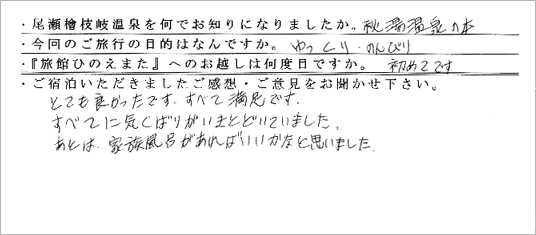 ・尾瀬檜枝岐温泉を何でお知りになりましたか。秘湯温泉の本
・今回のご旅行の目的はなんですか。ゆっくり・のんびり
・『旅館ひのえまた』へのお越しは何度目ですか。初めてです
・ご宿泊いただきましたご感想・ご意見をお聞かせ下さい。
とても良かったです。すべて満足です。
すべてに気くばりがいきとどいていました。
あとは、家族風呂があればいいかなと思いました。